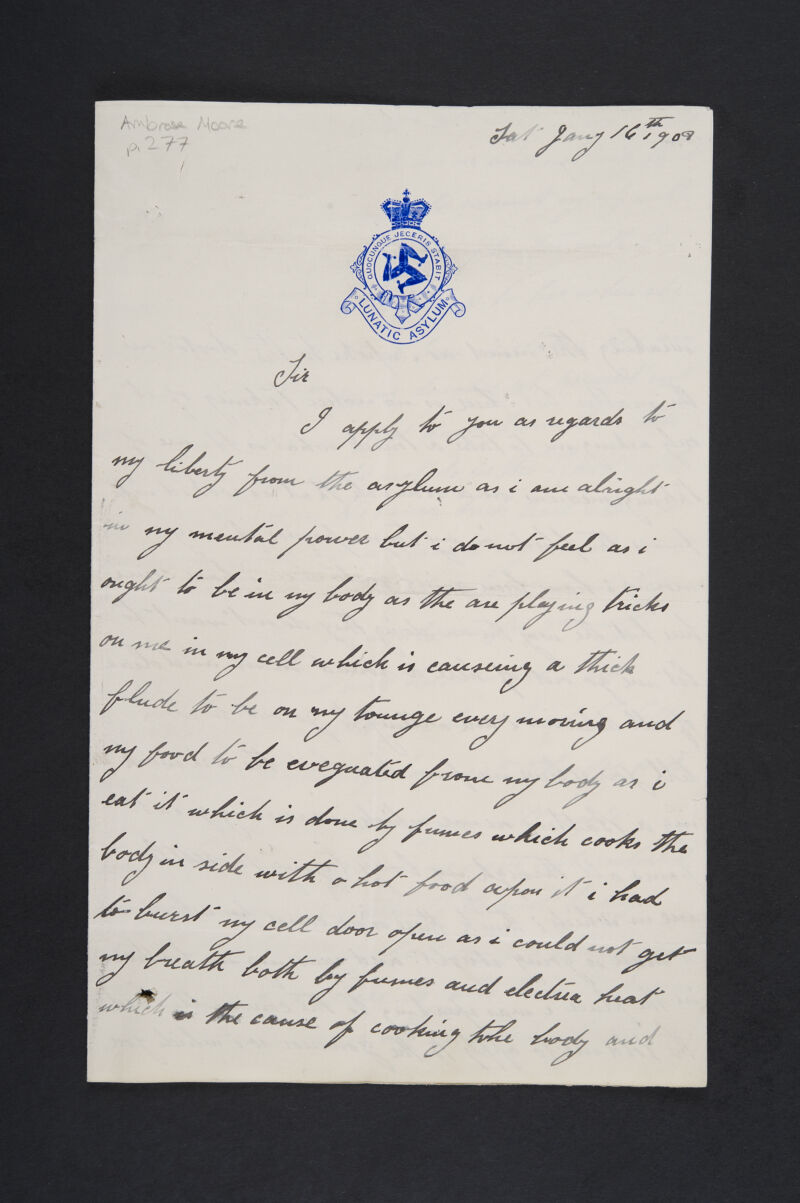 Ambrose Moore
p. 277
Sat Jany 16th 1908
QUOCUNQUE JECERIS STABIT
LUNATIC ASYLUM
Sir
I apply to you as regards to
my liberty from the asylum as i am alright
in my mental power but i do not feel as i
ought to be in my body as the are playing tricks
on me in my cell which is causeing a thick
flude to be on my tounge every moring and
my food to be evequated from my body as i
eat it which is done by fumes which cooks the
body in side with a hot food apon it i had
to burst my cell door open as i could not get
my breath both by fumes and electrea heat
which is the cause of cooking tohe body and